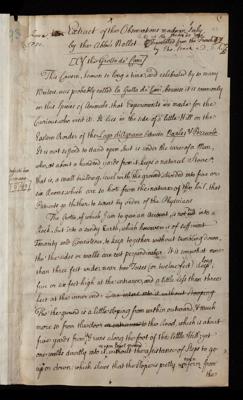 Extract of the Observations made in Italy
by the Abbé Nollet
Translated from the French
by Tho. Stack M.D. F.R.S.
[Of the Grotto de' Cani]
The Cavern, known so long a time, and celebrated by so many
Writers, was probably called la Grotta de' Cani, because it is commonly
on this Species of Animals, that Experiments are made for the
Curious who visit it. It lies in the side of a little Hill on the
Eastern Border of the Lago d'Agnano between Naples & Pozzuolo.
It is not refused to stand open, but is under the care of a Man,
who, at about a hundred yards from it, keeps a natural Stove,
that is, a small building, level with the ground, divided into five or
six Rooms, which are so hot from the nature of the soil, that
Patients go thither to sweat by order of the Physicians.
The Grotto, of which I am to give an Account, is not cut into a
Rock, but into a sandy Earth, which however is of sufficient
Tenacity and Consistence, to keep together without tumbling down,
tho' the sides or walls are not perpendicular. It is somewhat more
than three feet wide, near ten Foot (or twelve feet) long,
five or six feet high at the entrance, and a little less than three
feet at the inner end.
For the ground is a little sloping from within outward, & much
more so from the door to the road, which is about
five yards from it, & runs along the foot of the little Hill, yet
one walks directly into it, without the assistance of Steps to go
up or down; which shews that the slope is pretty uniform from
the